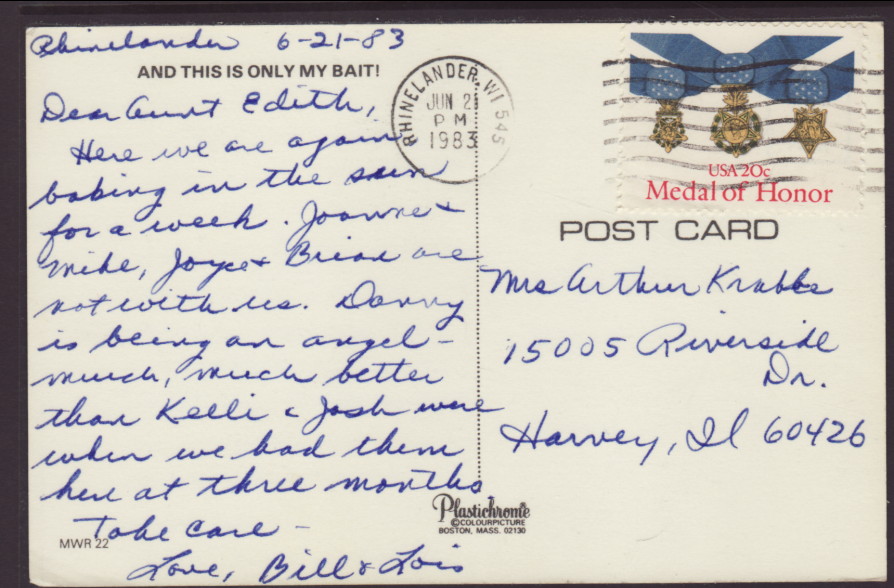 Rhinelander 6-21-83
AND THIS IS ONLY MY BAIT!
Dear Aunt Edith,
Here we are again
baking in the sun
for a week. Joanne &
Mike, Joyce & Brian are
not with us. Danny
is being an angel -
much, much better
than Kelli & Josh were
when we had them
here at three months
Take care -
Love, Bill & Lois
MWR 22
RHINELANDER, WI 545
JUN 21
PM
1983
USA 20c
Medal of Honor
POST CARD
Mrs Arthur Krabbe
15005 Riverside
Dr.
Harvey, Il 60426
Plastichrome
©COLOURPICTURE
BOSTON, MASS. 02130